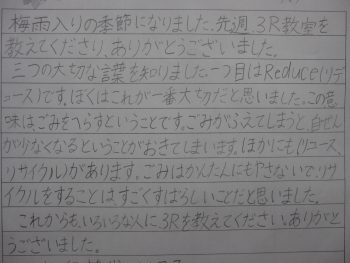 梅雨入りの季節になりました。先週、3R教室を
教えてくださり、ありがとうございました。
三つの大切な言葉を知りました。一つ目はReduce(リデ
ュース)です。ぼくはこれが一番大切だと思いました。この意
味はごみをへらすということです。ごみがふえてしまうと、自ぜん
がなくなるということがおきてしまいます。ほかにも(リユース、
リサイクル)があります。ごみはかんたんにもやさないで、リサ
イクルをすることは、すごくすばらしいことだと思いました。
これからも、いろいろな人に、3Rを教えてください。ありがと
うございました。